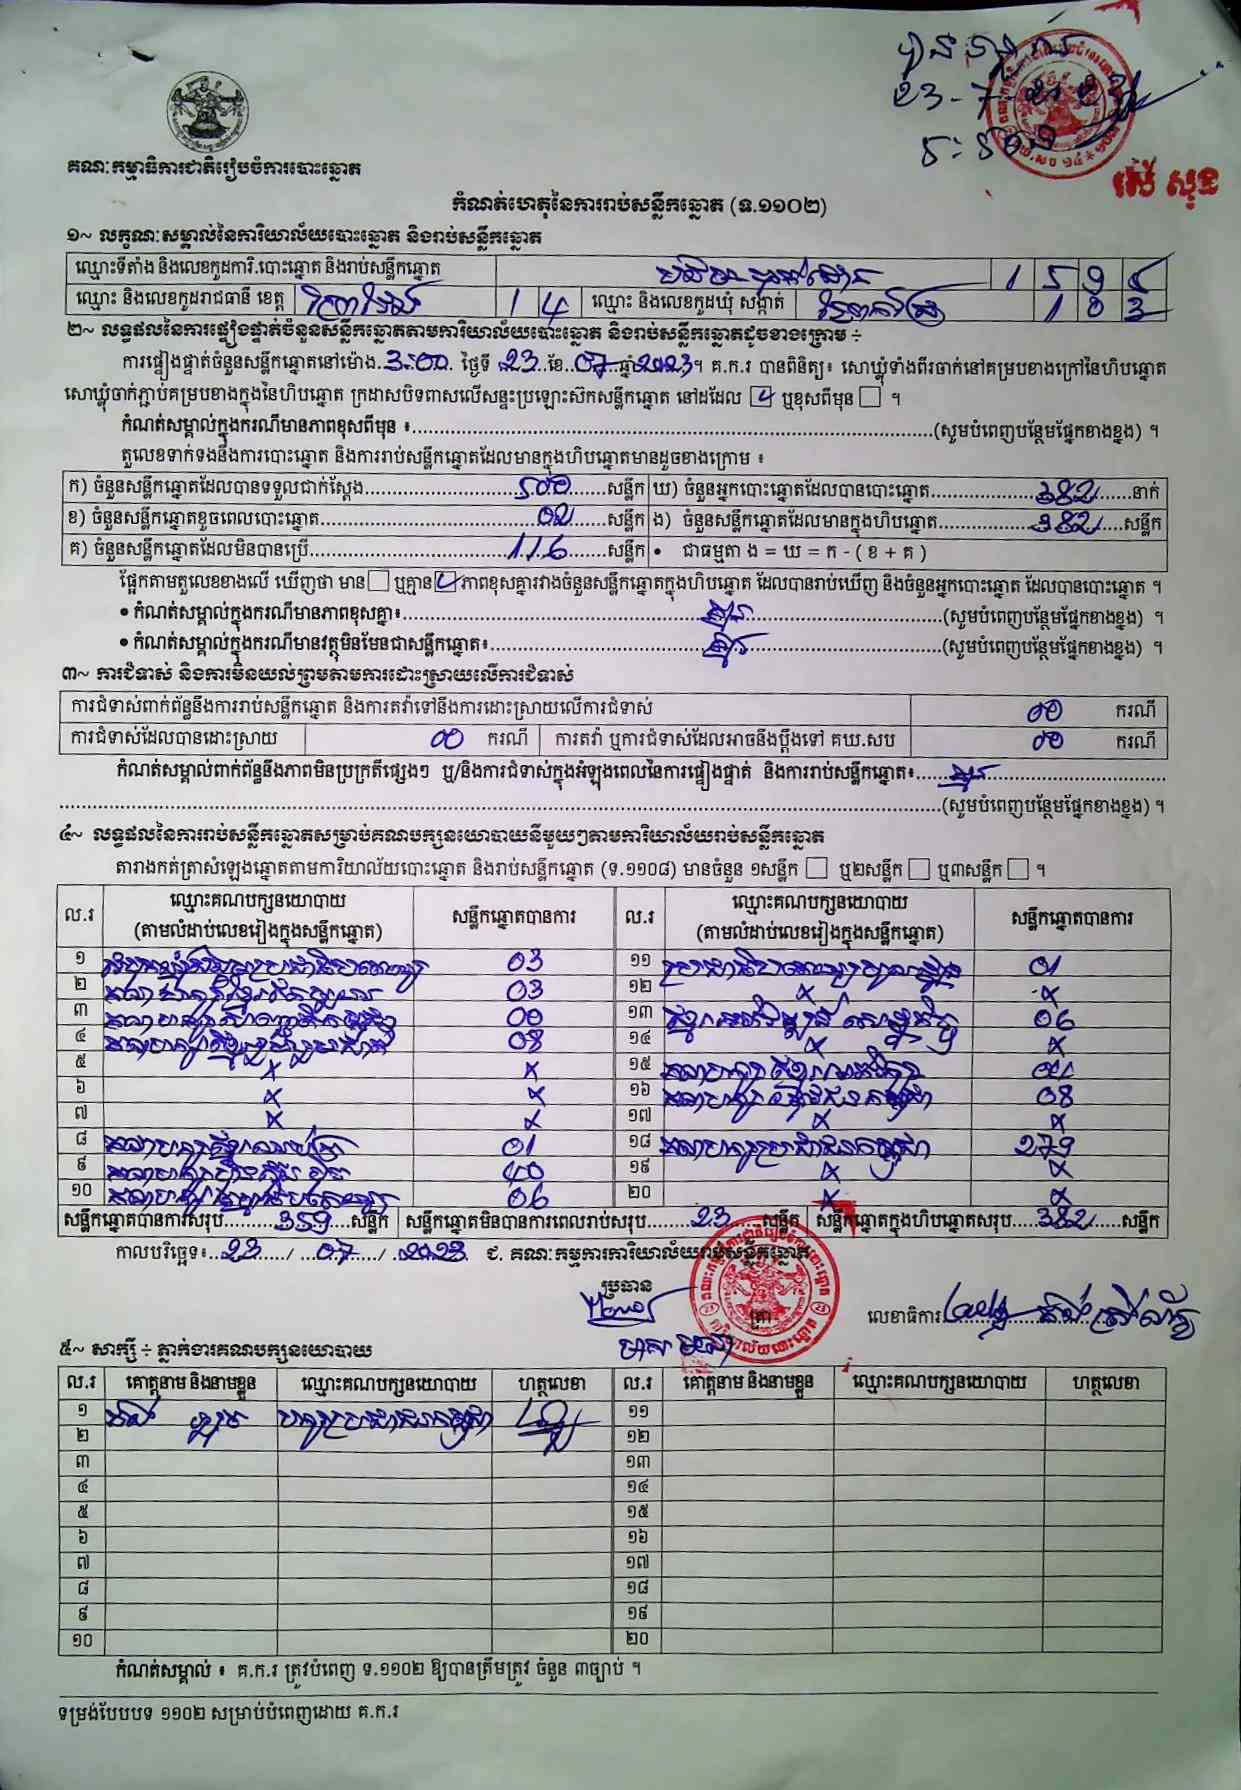 23-7-
សើ សុខ
គណៈកម្មាធិការជាតិរៀបចំការបោះឆ្នោត
កំណត់ហេតុនៃការរាប់សន្លឹកឆ្នោត (ទ.១១០២)
១~ លក្ខណៈសម្គាល់នៃការិយាល័យបោះឆ្នោត និងរាប់សន្លឹកឆ្នោត
ឈ្មោះទីតាំង និងលេខកូដការិ.បោះឆ្នោត និងរាប់សន្លឹកឆ្នោត
ឈ្មោះ និងលេខកូដរាជធានី ខេត្ត ព្រៃវែង 1 4 ឈ្មោះ និងលេខកូដឃុំ សង្កាត់ 1 0 3
២~ លទ្ធផលនៃការផ្ទៀងផ្ទាត់ចំនួនសន្លឹកឆ្នោតតាមការិយាល័យបោះឆ្នោត និងរាប់សន្លឹកឆ្នោតដូចខាងក្រោម ÷
ការផ្ទៀងផ្ទាត់ចំនួនសន្លឹកឆ្នោតនៅម៉ោង..3:00. ថ្ងៃទី .23..ខែ..07..ឆ្នាំ2023។ គ.ក.រ បានពិនិត្យ៖ សោឃ្លុំទាំងពីរចាក់នៅគម្របខាងក្រៅនៃហិបឆ្នោត
សោឃ្លុំចាក់ភ្ជាប់គម្របខាងក្នុងនៃហិបឆ្នោត ក្រដាសបិទពាសលើសន្ទះប្រឡោះស៊កសន្លឹកឆ្នោត នៅដដែល ឬខុសពីមុន ។
កំណត់សម្គាល់ក្នុងករណីមានភាពខុសពីមុន ៖..........(សូមបំពេញបន្ថែមផ្នែកខាងខ្នង) ។
តួលេខទាក់ទងនឹងការបោះឆ្នោត និងការរាប់សន្លឹកឆ្នោតដែលមានក្នុងហិបឆ្នោតមានដូចខាងក្រោម ៖
ក) ចំនួនសន្លឹកឆ្នោតដែលបានទទួលជាក់ស្ដែង..........500......សន្លឹក ឃ) ចំនួនអ្នកបោះឆ្នោតដែលបានបោះឆ្នោត..........382......នាក់
ខ) ចំនួនសន្លឹកឆ្នោតខូចពេលបោះឆ្នោត..........02......សន្លឹក ង) ចំនួនសន្លឹកឆ្នោតដែលមានក្នុងហិបឆ្នោត..........382.....សន្លឹក
គ) ចំនួនសន្លឹកឆ្នោតដែលមិនបានប្រើ..........116......សន្លឹក • ជាធម្មតា ង = ឃ = ក - ( ខ + គ )
ផ្អែកតាមតួលេខខាងលើ ឃើញថា មាន ឬគ្មាន ភាពខុសគ្នារវាងចំនួនសន្លឹកឆ្នោតក្នុងហិបឆ្នោត ដែលបានរាប់ឃើញ និងចំនួនអ្នកបោះឆ្នោត ដែលបានបោះឆ្នោត ។
• កំណត់សម្គាល់ក្នុងករណីមានភាពខុសគ្នា៖..........គ្មាន..........(សូមបំពេញបន្ថែមផ្នែកខាងខ្នង) ។
• កំណត់សម្គាល់ក្នុងករណីមានវត្ថុមិនមែនជាសន្លឹកឆ្នោត៖..........គ្មាន..........(សូមបំពេញបន្ថែមផ្នែកខាងខ្នង) ។
៣~ ការជំទាស់ និងការមិនយល់ព្រមតាមការដោះស្រាយលើការជំទាស់
ការជំទាស់ពាក់ព័ន្ធនឹងការរាប់សន្លឹកឆ្នោត និងការតវ៉ាទៅនឹងការដោះស្រាយលើការជំទាស់ 00 ករណី
ការជំទាស់ដែលបានដោះស្រាយ 00 ករណី ការតវ៉ា ឬការជំទាស់ដែលអាចនឹងប្ដឹងទៅ គឃ.សប 00 ករណី
កំណត់សម្គាល់ពាក់ព័ន្ធនឹងភាពមិនប្រក្រតីផ្សេងៗ ឬ/និងការជំទាស់ក្នុងអំឡុងពេលនៃការផ្ទៀងផ្ទាត់ និងការរាប់សន្លឹកឆ្នោត៖......គ្មាន..........
..........(សូមបំពេញបន្ថែមផ្នែកខាងខ្នង) ។
៤~ លទ្ធផលនៃការរាប់សន្លឹកឆ្នោតសម្រាប់គណបក្សនយោបាយនីមួយៗតាមការិយាល័យរាប់សន្លឹកឆ្នោត
តារាងកត់ត្រាសំឡេងឆ្នោតតាមការិយាល័យបោះឆ្នោត និងរាប់សន្លឹកឆ្នោត (ទ.១១០៨) មានចំនួន ១សន្លឹក ឬ២សន្លឹក ឬ៣សន្លឹក ។
ល.រ ឈ្មោះគណបក្សនយោបាយ (តាមលំដាប់លេខរៀងក្នុងសន្លឹកឆ្នោត) សន្លឹកឆ្នោតបានការ ល.រ ឈ្មោះគណបក្សនយោបាយ (តាមលំដាប់លេខរៀងក្នុងសន្លឹកឆ្នោត) សន្លឹកឆ្នោតបានការ
១ 03 ១១ 01
២ 03 ១២ x x
៣ 00 ១៣ 06
៤ 08 ១៤ x x
៥ x x ១៥
៦ x x ១៦ 08
៧ x x ១៧ x x
៨ 01 ១៨ គណបក្សប្រជាជនកម្ពុជា 279
៩ 40 ១៩ x x
១០ 06 ២០ x x
សន្លឹកឆ្នោតបានការសរុប..........359....សន្លឹក សន្លឹកឆ្នោតមិនបានការពេលរាប់សរុប........23......សន្លឹក សន្លឹកឆ្នោតក្នុងហិបឆ្នោតសរុប.....382......សន្លឹក
កាលបរិច្ឆេទ៖..23....../ ...07....../ ..2023. ជ. គណៈកម្មការការិយាល័យរាប់សន្លឹកឆ្នោត
ប្រធាន
ត្រា
លេខាធិការ
៥~ សាក្សី ÷ ភ្នាក់ងារគណបក្សនយោបាយ
ល.រ គោត្តនាម និងនាមខ្លួន ឈ្មោះគណបក្សនយោបាយ ហត្ថលេខា ល.រ គោត្តនាម និងនាមខ្លួន ឈ្មោះគណបក្សនយោបាយ ហត្ថលេខា
១ បក្សប្រជាជនកម្ពុជា ១១
២ ១២
៣ ១៣
៤ ១៤
៥ ១៥
៦ ១៦
៧ ១៧
៨ ១៨
៩ ១៩
១០ ២០
កំណត់សម្គាល់ ៖ គ.ក.រ ត្រូវបំពេញ ទ.១១០២ ឱ្យបានត្រឹមត្រូវ ចំនួន ៣ច្បាប់ ។
ទម្រង់បែបបទ ១១០២ សម្រាប់បំពេញដោយ គ.ក.រ